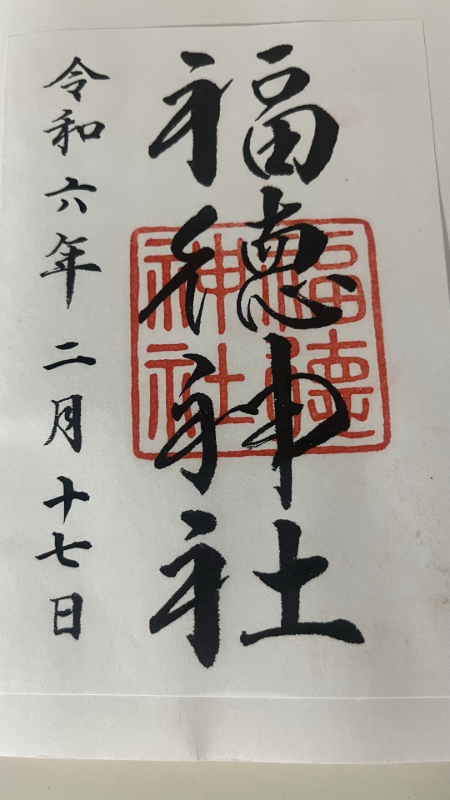 福德神社
福德神社
令和六年二月十七日